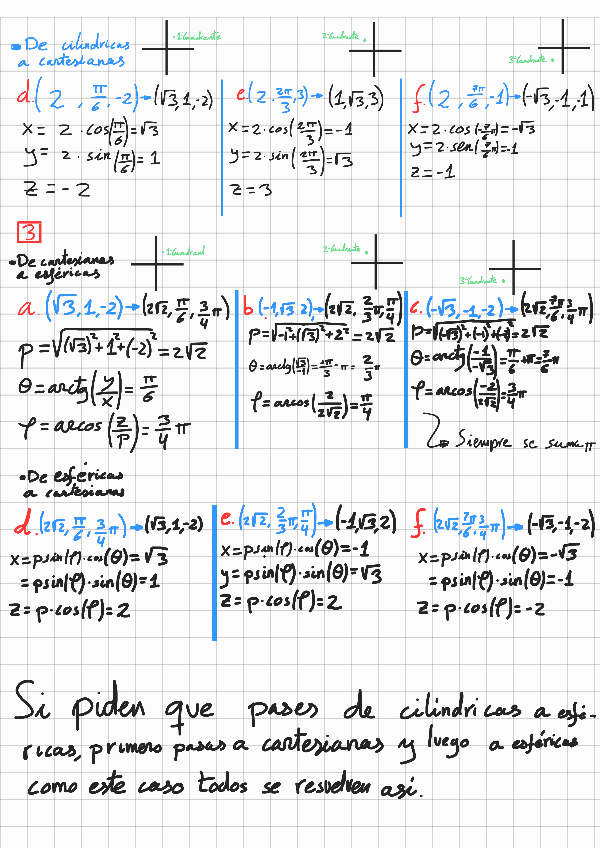 • De cilíndricas
a cartesianas
1-Cuadrante
2-Cuadrante
3-Cuadrante
d. (2, π/6, -2) → (√3, 1, -2)
x = 2 · cos(π/6) = √3
y = 2 · sin(π/6) = 1
z = -2
e. (2, 2π/3, 3) → (1, √3, 3)
x = 2 · cos(2π/3) = -1
y = 2 · sin(2π/3) = √3
z = 3
f. (2, 7π/6, -1) → (-√3, -1, -1)
x = 2 cos(7/6 π) = -√3
y = 2 sen(7/6 π) = -1
z = -1
3
• De cartesianas
a esféricas
1-Cuadrant
2-Cuadrante
3-Cuadrante
a. (√3, 1, -2) → (2√2, π/6, 3/4 π)
ρ = √((√3)² + 1² + (-2)²) = 2√2
θ = arctg(y/x) = π/6
φ = arcos(z/ρ) = 3/4 π
b (-1, √3, 2) → (2√2, 2/3 π, π/4)
ρ = √(-1² + (√3)² + 2²) = 2√2
φ = arcos(2/2√2) = π/4
c. (-√3, -1, -2) → (2√2, 7/6 π, 3/4 π)
ρ = √((-√3)² + (-1)² + (-2)²) = 2√2
θ = arctg(-1/-√3) = π/6 + π = 7/6 π
φ = arcos(-2/2√2) = 3/4 π
Siempre se suma π
• De esféricas
a cartesianas
d. (2√2, π/6, 3/4 π) → (√3, 1, -2)
x = ρ sin(φ) · cos(θ) = √3
= ρ sin(φ) · sin(θ) = 1
z = ρ · cos(φ) = 2
e. (2√2, 2/3 π, π/4) → (-1, √3, 2)
x = ρ sin(φ) · cos(θ) = -1
y = ρ sin(φ) · sin(θ) = √3
z = ρ · cos(φ) = 2
f. (2√2, 7/6 π, 3/4 π) → (-√3, -1, -2)
x = ρ sin(φ) · cos(θ) = -√3
= ρ sin(φ) · sin(θ) = -1
z = ρ · cos(φ) = -2
Si piden que pases de cilíndricas a esfé-
ricas, primero pasas a cartesianas y luego a esféricas
como este caso todos se resuelven así.